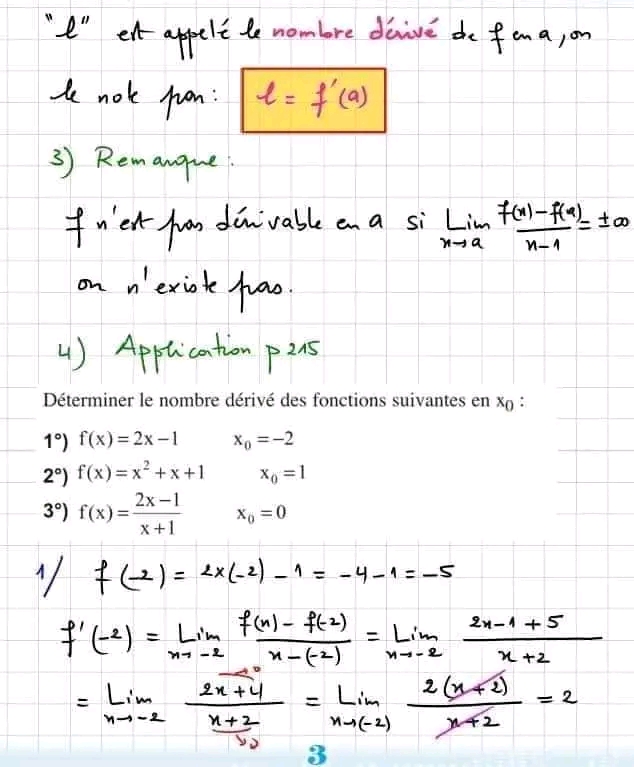 "l" est appelé le nombre dérivé de f en a, on
le note par : l = f'(a)
3) Remarque :
f n'est pas dérivable en a si Lim x→a (f(x)-f(a))/(x-1) = ±∞
ou n'existe pas.
4) Application p 215
Déterminer le nombre dérivé des fonctions suivantes en x₀ :
1°) f(x)=2x−1 x₀=−2
2°) f(x)=x²+x+1 x₀=1
3°) f(x)=(2x−1)/(x+1) x₀=0
1/ f(-2) = 2x(-2) - 1 = -4-1 = -5
f'(-2) = Lim x→-2 (f(x) - f(-2))/(x-(-2)) = Lim x→-2 (2x-1+5)/(x+2)
= Lim x→-2 (2x+4 →0)/(x+2 →0) = Lim x→(-2) (2(x+2))/(x+2) = 2
3